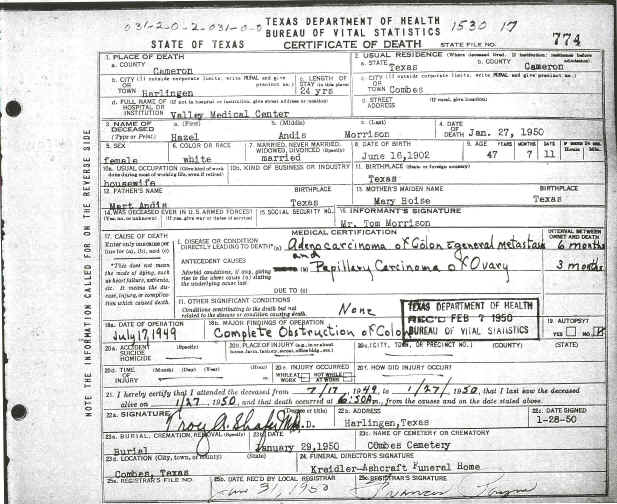 031-2-0-2-031-0-0
TEXAS DEPARTMENT OF HEALTH
1530 17
BUREAU OF VITAL STATISTICS
STATE OF TEXAS
CERTIFICATE OF DEATH
STATE FILE NO. 774
NOTE THE INFORMATION CALLED FOR ON THE REVERSE SIDE
1. PLACE OF DEATH
a. COUNTY
Cameron
2. USUAL RESIDENCE (Where deceased lived. If institution: residence before admission)
a. STATE
Texas
b. COUNTY
Cameron
b. CITY (If outside corporate limits, write RURAL and give precinct no.)
OR
TOWN Harlingen
c. LENGTH OF
STAY (in this place)
24 yrs
c. CITY (If outside corporate limits, write RURAL and give precinct no.)
OR
TOWN Combes
d. FULL NAME OF (If not in hospital or institution, give street address or location)
HOSPITAL OR
INSTITUTION
Valley Medical Center
d. STREET
ADDRESS
(If rural, give location)
3. NAME OF
DECEASED
(Type or Print)
a. (First)
Hazel
b. (Middle)
Andis
c. (Last)
Morrison
4. DATE
OF
DEATH Jan. 27, 1950
5. SEX
female
6. COLOR OR RACE
white
7. MARRIED, NEVER MARRIED,
WIDOWED, DIVORCED (Specify)
married
8. DATE OF BIRTH
June 16, 1902
9. AGE YEARS MONTHS DAYS
47 7 11
10a. USUAL OCCUPATION (Give kind of work
done during most of working life, even if retired)
housewife
10b. KIND OF BUSINESS OR INDUSTRY
11. BIRTHPLACE (State or foreign country)
Texas
12. FATHER'S NAME
Mart Andis
BIRTHPLACE
Texas
13. MOTHER'S MAIDEN NAME
Mary Hoise
BIRTHPLACE
Texas
14. WAS DECEASED EVER IN U.S. ARMED FORCES?
(Yes, no, or unknown) (If yes, give war or dates of service)
15. SOCIAL SECURITY NO.
16. INFORMANT'S SIGNATURE
Mr. Tom Morrison
MEDICAL CERTIFICATION
INTERVAL BETWEEN
ONSET AND DEATH
17. CAUSE OF DEATH
Enter only one cause per
line for (a), (b), and (c)
*This does not mean
the mode of dying, such
as heart failure, asthenia,
etc. It means the disease,
injury, or complication
which caused death.
I. DISEASE OR CONDITION
DIRECTLY LEADING TO DEATH*(a)
Adenocarcinoma of Colon & general metastasis
6 months
and
ANTECEDENT CAUSES
Morbid conditions, if any, giving
rise to the above cause (a) stating
the underlying cause last
(b) Papillary Carcinoma of Ovary
3 months
DUE TO (c)
II. OTHER SIGNIFICANT CONDITIONS
Conditions contributing to the death but not
related to the disease or condition causing death.
None
TEXAS DEPARTMENT OF HEALTH
REC'D FEB 7 1950
BUREAU OF VITAL STATISTICS
18a. DATE OF OPERATION
July 17, 1949
18b. MAJOR FINDINGS OF OPERATION
Complete Obstruction of Colon
19. AUTOPSY
YES NO
20a. ACCIDENT
SUICIDE
HOMICIDE
(Specify)
20b. PLACE OF INJURY (e.g., in or about
home, farm, factory, street, office bldg., etc.)
20c. (CITY, TOWN, OR PRECINCT NO.) (COUNTY) (STATE)
20d. TIME
OF
INJURY
(Month) (Day) (Year) (Hour)
20e. INJURY OCCURRED
WHILE AT WORK NOT WHILE AT WORK
20f. HOW DID INJURY OCCUR?
21. I hereby certify that I attended the deceased from 7/17 1949, to 1/27/ 1950, that I last saw the deceased
alive on 1/27 1950, and that death occurred at 6:50A m., from the causes and on the date stated above.
22a. SIGNATURE
(Degree or title)
Troy A. Shafer M.D.
22b. ADDRESS
Harlingen, Texas
22c. DATE SIGNED
1-28-50
23a. BURIAL, CREMATION, REMOVAL (Specify)
Burial
23b. DATE
January 29, 1950
23c. NAME OF CEMETERY OR CREMATORY
Combes Cemetery
23d. LOCATION (City, town, or county) (State)
Combes, Texas
24. FUNERAL DIRECTOR'S SIGNATURE
Kreidler-Ashcraft Funeral Home
25a. REGISTRAR'S FILE NO.
25b. DATE REC'D BY LOCAL REGISTRAR
Jan 31, 1950
25c. REGISTRAR'S SIGNATURE